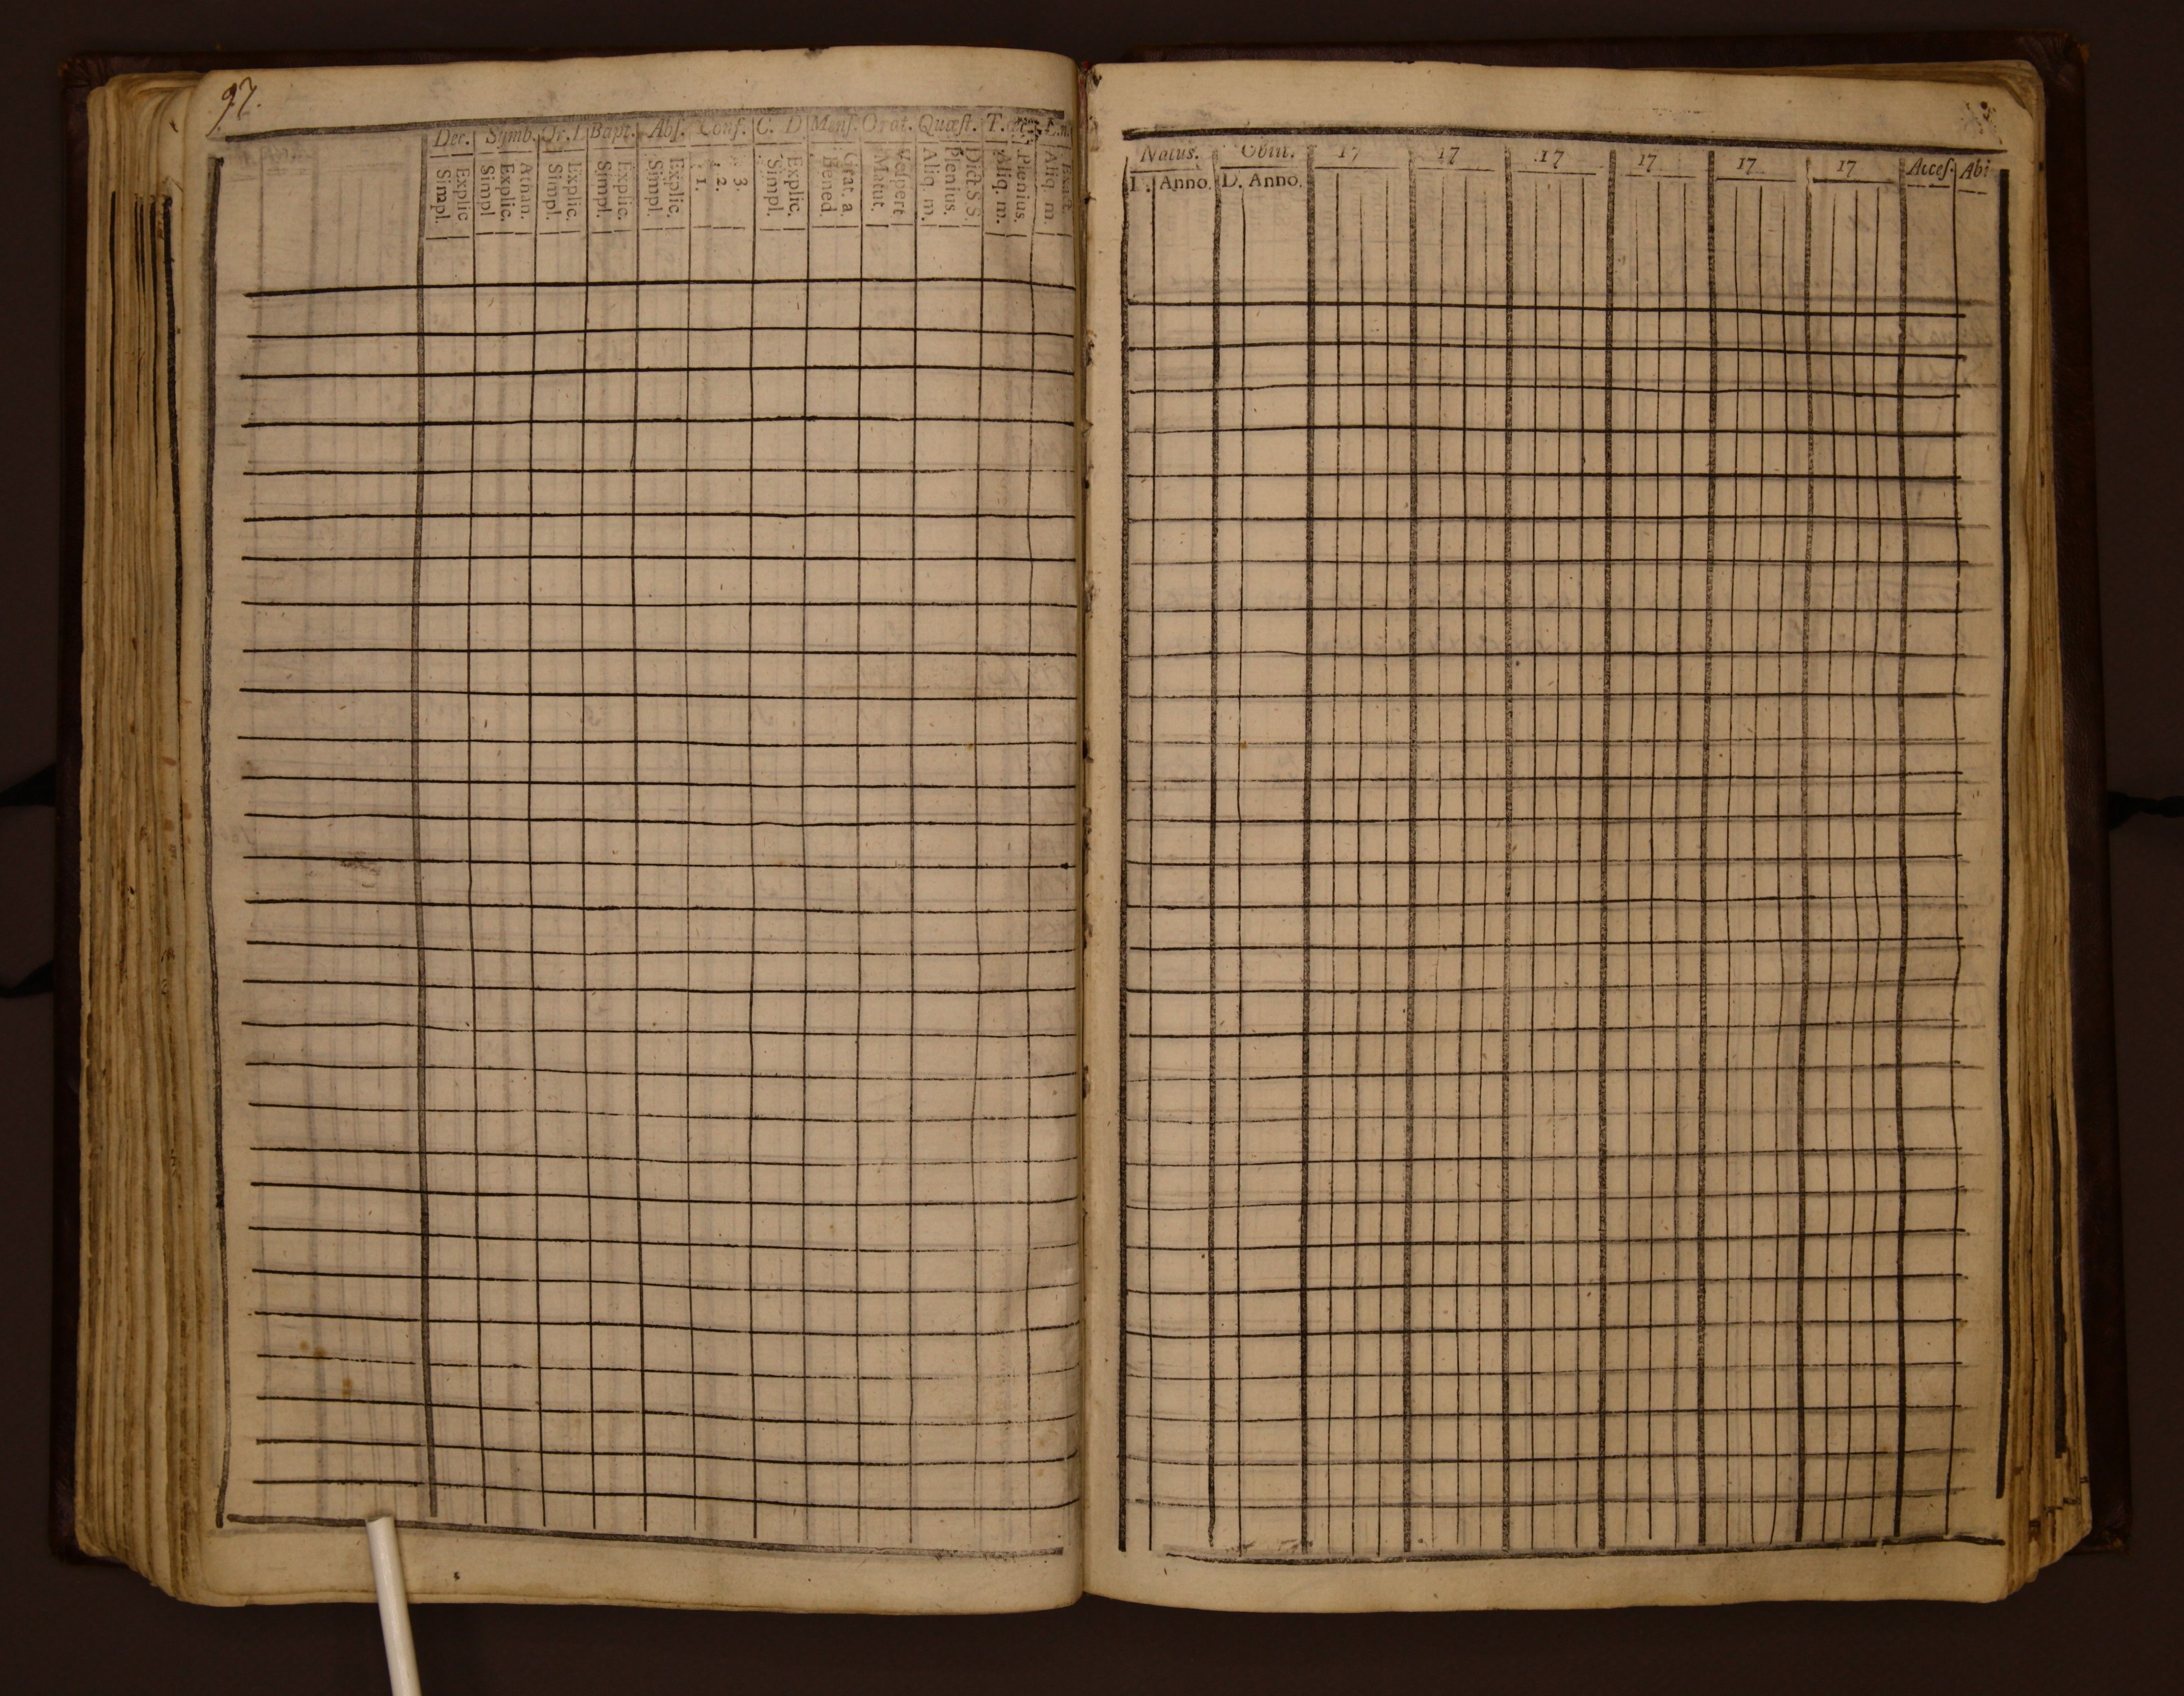 97.
Dec. Symb. Or. Bapt. Abs. Conf. C. D Mens. Orat. Quæst. T.
Simpl. Explic Simpl Explic. Athan. Simpl. Explic. Simpl. Explic. Simpl. Explic. 1. 2. 3. Simpl. Explic. Bened. Grat. a. Matut. Vespert Aliq. m. Plenius. Dict. S S. Aliq. m. Plenius. Aliq. m.
Natus. Obiit. 17 17 17 17 17 17 Acces. Abi
Anno. D. Anno.